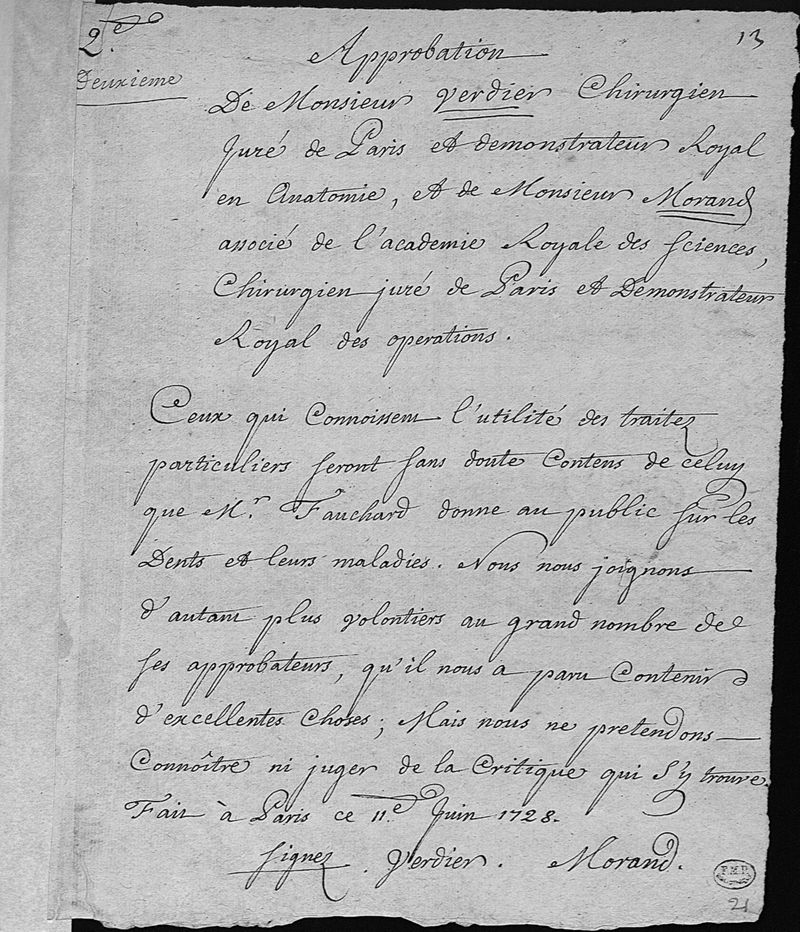 13
2.e
Deuxieme
Approbation
De Monsieur Verdier Chirurgien
Juré de Paris et demonstrateur Royal
en Anatomie, et de Monsieur Morand
associé de l'academie Royale des Sciences,
Chirurgien juré de Paris et Demonstrateur
Royal des operations.
Ceux qui Connoissent l'utilité des traitez
particuliers seront sans doute Contens de celuy
que Mr. Fauchard donne au public sur les
Dents et leurs maladies. Nous nous joignons
d'autant plus volontiers au grand nombre de
ses approbateurs, qu'il nous a paru Contenir
d'excellentes choses; Mais nous ne pretendons
Connoître ni juger de la Critique qui s'y trouve.
Fait à Paris ce 11.e Juin 1728.
signez Verdier. Morand.
F.M.P.
21